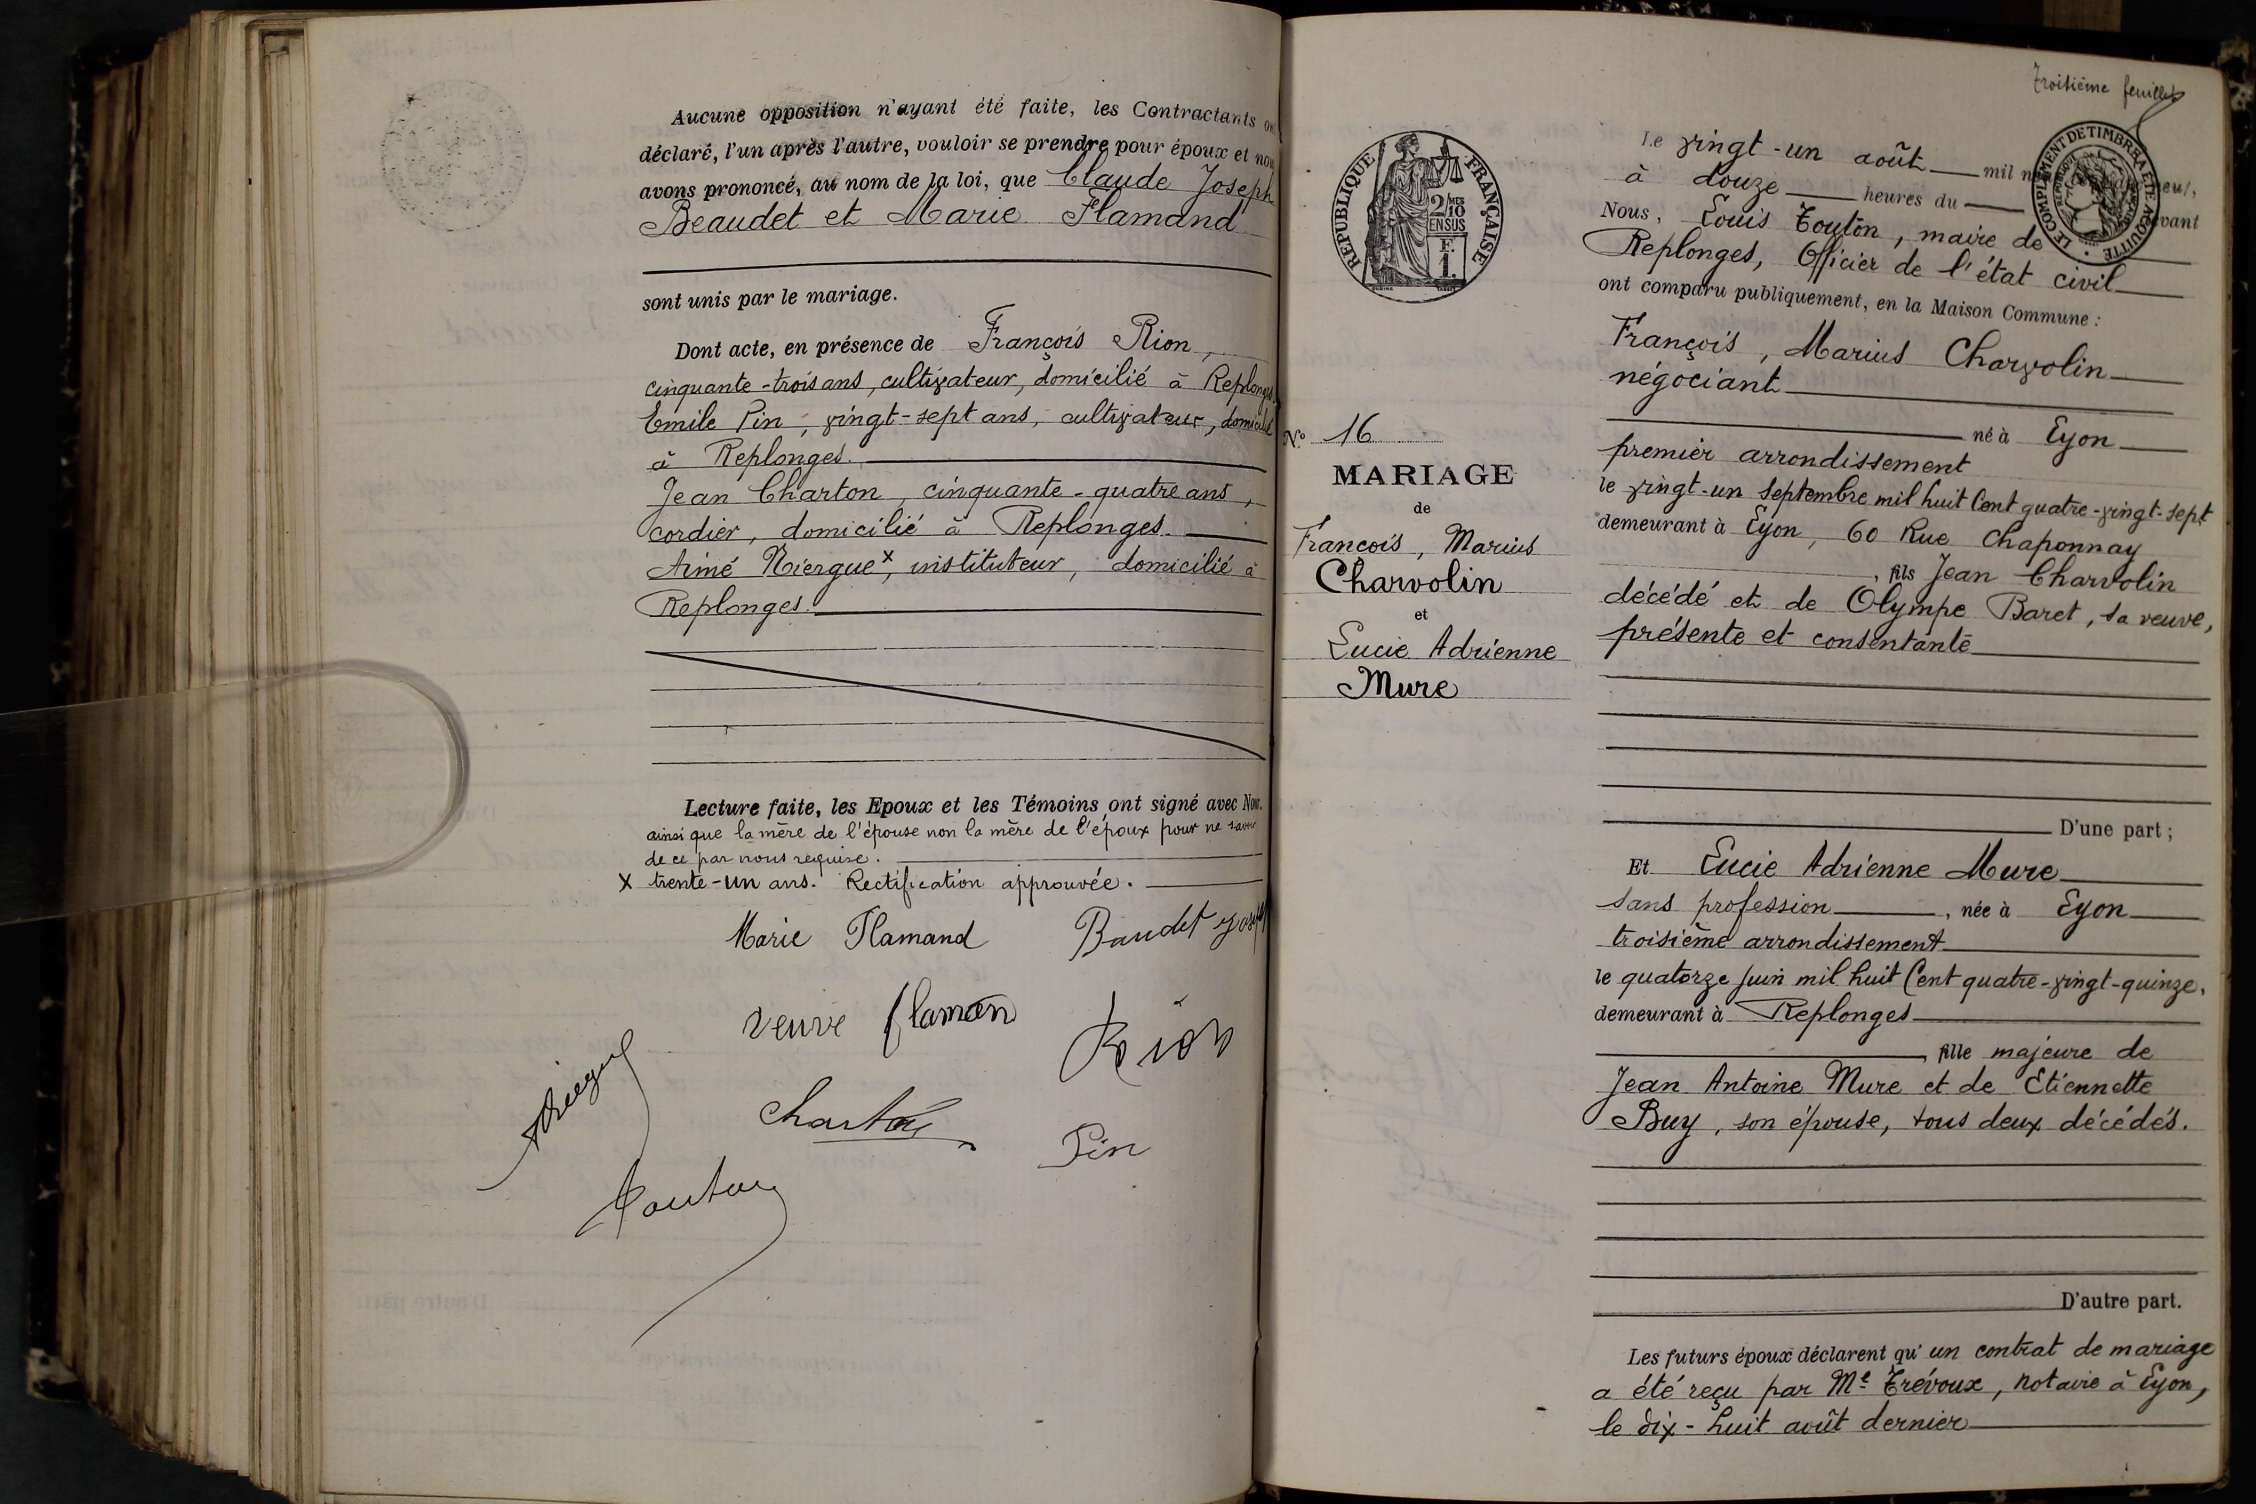 Aucune opposition n'ayant été faite, les Contractants
déclaré, l'un après l'autre, vouloir se prendre pour époux et nou
avons prononcé, au nom de la loi, que Claude Joseph
Beaudet et Marie Flamand
sont unis par le mariage.
Dont acte, en présence de François Rion,
cinquante-trois ans, cultivateur, domicilié à Replonges.
Emile Pin, vingt-sept ans, cultivateur, domicilié
à Replonges.
Jean Charton, cinquante-quatre ans,
cordier, domicilié à Replonges.
Aimé Niergue x, instituteur, domicilié à
Replonges.
Lecture faite, les Epoux et les Témoins ont signé avec Nous.
ainsi que la mère de l'épouse non la mère de l'époux pour ne savoir
de ce par nous requise.
x trente-un ans. Rectification approuvée.
Marie Flamand Baudet
veuve flaman
Rion
Pin
Troisième feuillet
RÉPUBLIQUE FRANÇAISE
2/10 MES
EN SUS
F. 1.
LE COMPLÉMENT DE TIMBRE A ÉTÉ ACQUITTÉ
Le vingt-un août mil
à douze heures du
Nous, Louis Touton, maire de
Replonges, Officier de l'état civil
ont comparu publiquement, en la Maison Commune :
François, Marius Charvolin
négociant
né à Lyon
premier arrondissement
le vingt-un septembre mil huit Cent quatre-vingt-sept
demeurant à Lyon, 60 Rue Chaponnay
, fils Jean Charvolin
décédé et de Olympe Baret, sa veuve,
présente et consentante
D'une part ;
N° 16
MARIAGE
de
François, Marius
Charvolin
et
Lucie Adrienne
Mure
Et Lucie Adrienne Mure
sans profession, née à Lyon
troisième arrondissement
le quatorze juin mil huit Cent quatre-vingt-quinze,
demeurant à Replonges
, fille majeure de
Jean Antoine Mure et de Etiennette
Buy, son épouse, tous deux décédés.
D'autre part.
Les futurs époux déclarent qu'un contrat de mariage
a été reçu par Me Trévoux, notaire à Lyon,
le dix-huit août dernier